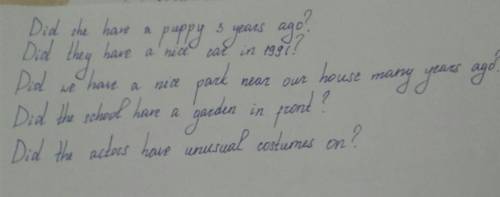 Did she have a puppy 3 years ago?
Did they have a nice car in 1991?
Did we have a nice park near our house many years ago?
Did the school have a garden in front?
Did the actors have unusual costumes on?